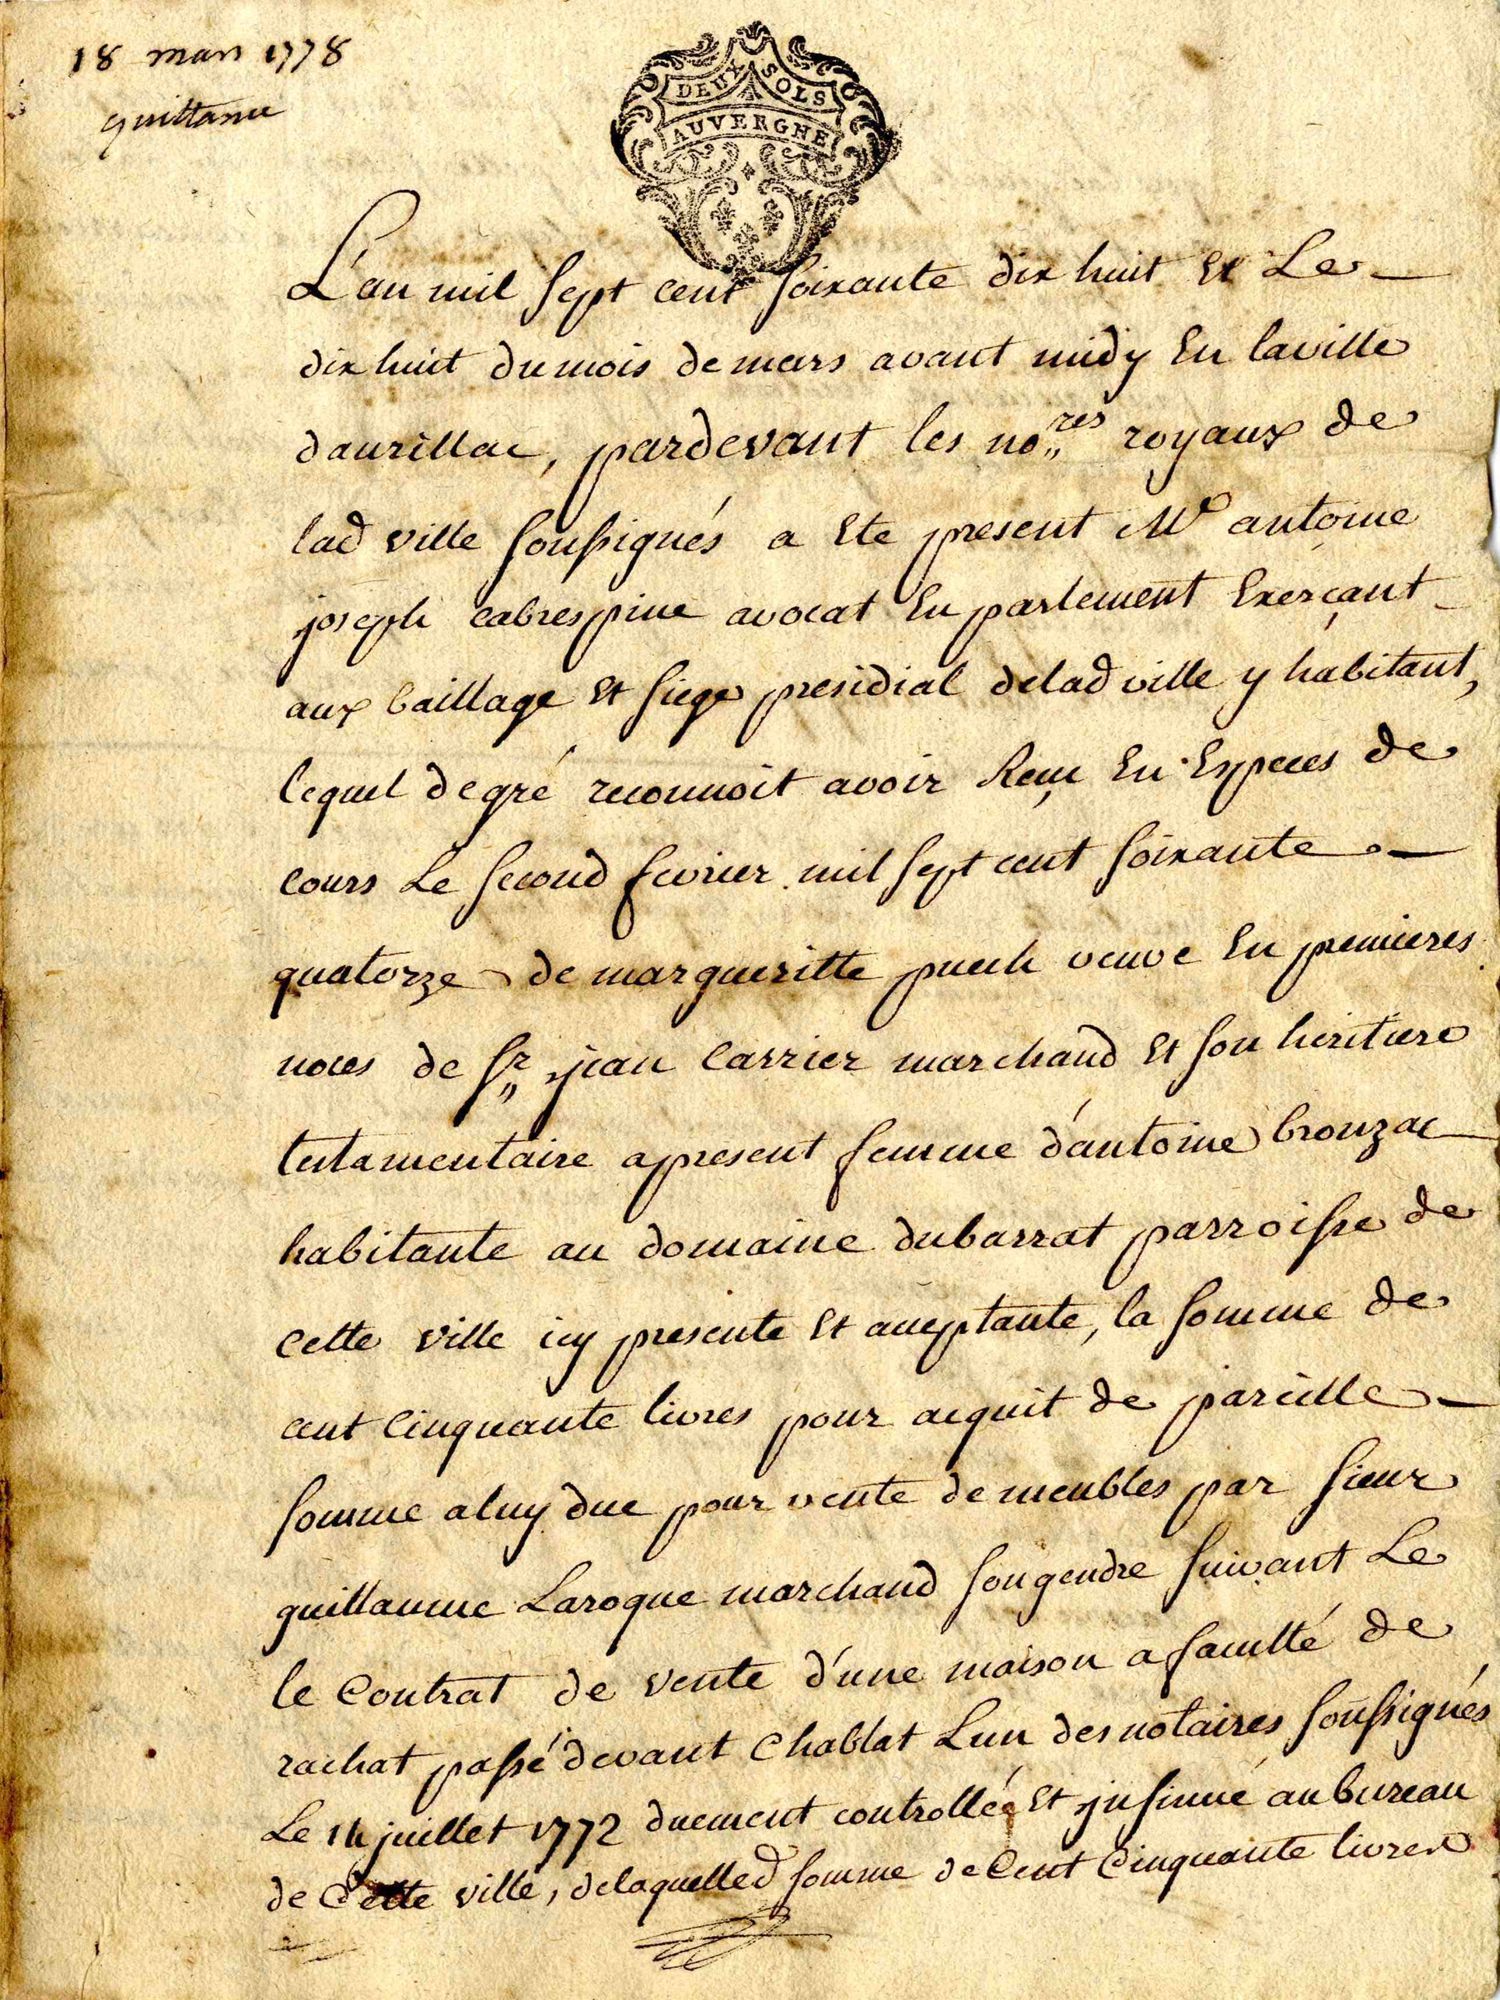 18 mars 1778
quittance
DEUX SOLS
AUVERGNE
L'an mil sept cent soixante dix huit et Le
dix huit du mois de mars avant midy En laville
daurillac, pardevant les no.res royaux de
lad ville soussignés a Ete present Me antoine
joseph cabrespine avocat En parlement Exerçant
aux baillage Et siege presidial delad ville y habitant,
lequel degré reconnoit avoir Reçu En Especes de
cours Le second fevrier mil sept cent soixante
quatorze de margueritte puech veuve En premieres
noces de Sr jean Carrier marchand Et son heritiere
testamentaire apresent femme d'antoine brouzac
habitante au domaine dubarrat parroisse de
cette ville icy presente Et acceptante, la somme de
cent cinquante livres pour acquit de pareille
somme aluy due pour vente de meubles par sieur
guillaume Laroque marchand son gendre suivant Le
le Contrat de vente d'une maison a faculté de
rachat passé devant Chablat Lun des notaires soussignés
Le 14 juillet 1772 duement controllée Et jnsinué au bureau
de Cette ville, delaquelled somme de Cent Cinquante livres